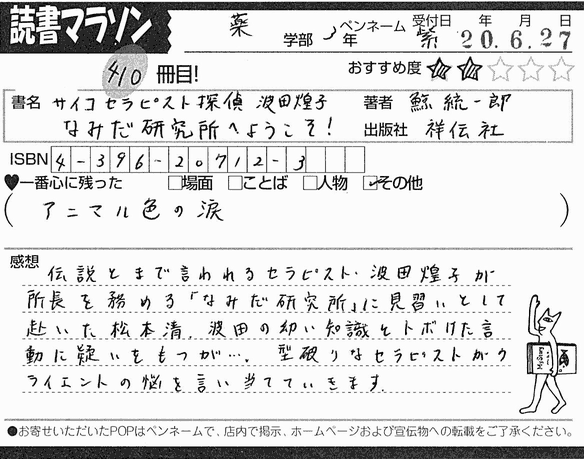 読書マラソン
薬 学部 3年 ペンネーム 紫 受付日 20年6月27日
410 冊目!
おすすめ度 ★★☆☆☆
書名 サイコセラピスト探偵 波田煌子
なみだ研究所へようこそ!
著者 鯨統一郎
出版社 祥伝社
ISBN 4-396-20712-3
♥一番心に残った □場面 □ことば □人物 ☑その他
(アニマル色の涙)
感想
伝説とまで言われるセラピスト・波田煌子が
所長を務める「なみだ研究所」に見習いとして
赴いた松本清。波田の幼い知識とトボけた言
動に疑いをもつが…。型破りなセラピストがク
ライエントの悩を言い当てていきます。
●お寄せいただいたPOPはペンネームで、店内で掲示、ホームページおよび宣伝物への転載をご了承ください。